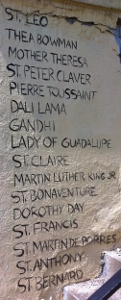 ST. LEO
THEA BOWMAN
MOTHER THERESA
ST. PETER CLAVER
PIERRE TOUSSAINT
DALI LAMA
GANDHI
LADY OF GUADALUPE
ST. CLAIRE
MARTIN LUTHER KING JR.
ST. BONAVENTURE
DOROTHY DAY
ST. FRANCIS
ST. MARTIN DE PORRES
ST. ANTHONY
ST BERNARD